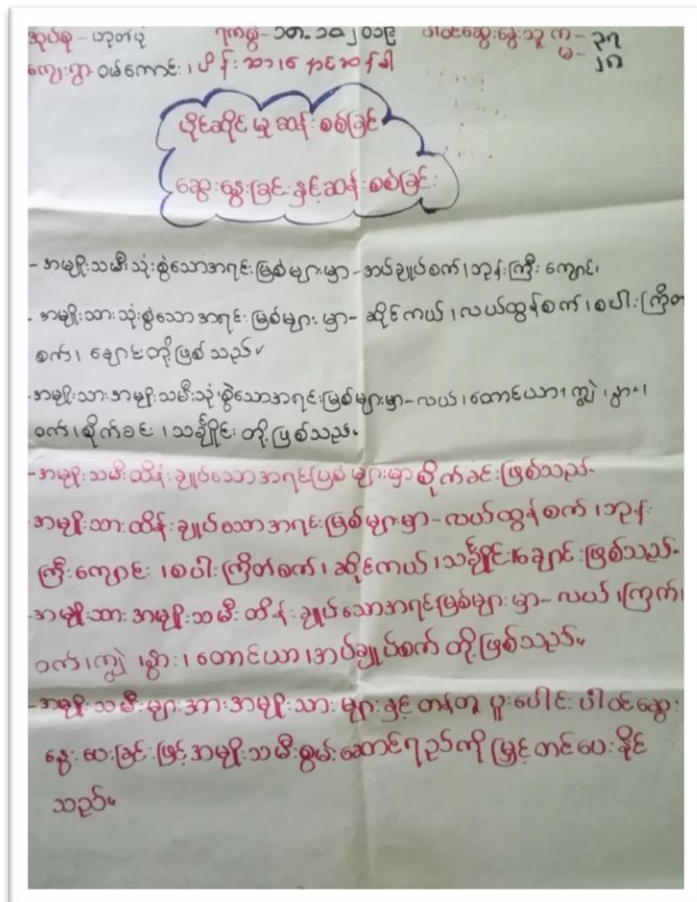 အုပ်စု - ဟုတ်ပုံ ရက်စွဲ - ၁၈.၁၁.၂၀၁၉ ပါဝင်ဆွေးနွေးသူ ကျ - ၃၅
ကျေးရွာ ဝမ်ကောင်း၊ ပိန်းဆာ၊ မ - ၂၈
ပိုင်ဆိုင်မှု ဆန်းစစ်ခြင်း
ဆွေးနွေးခြင်းနှင့်ဆန်းစစ်ခြင်း
- အမျိုးသမီးသုံးစွဲသောအရင်းမြစ်များမှာ - အပ်ချုပ်စက်၊ ဘုန်းကြီးကျောင်း၊
- အမျိုးသားသုံးစွဲသောအရင်းမြစ်များမှာ - ဆိုင်ကယ်၊ လယ်ထွန်စက်၊ စပါးကြိတ်
စက်၊ ချောင်းတို့ဖြစ်သည်။
- အမျိုးသားအမျိုးသမီးသုံးစွဲသောအရင်းမြစ်များမှာ - လယ်၊ တောင်ယာ၊ ကျွဲ၊ နွား၊
ဝက်၊ စိုက်ခင်း၊ သင်္ချိုင်းတို့ဖြစ်သည်။
- အမျိုးသမီးထိန်းချုပ်သောအရင်းမြစ်များမှာ စိုက်ခင်းဖြစ်သည်။
- အမျိုးသားထိန်းချုပ်သောအရင်းမြစ်များမှာ - လယ်ထွန်စက်၊ ဘုန်း
ကြီးကျောင်း၊ စပါးကြိတ်စက်၊ ဆိုင်ကယ်၊ သင်္ချိုင်း၊ ချောင်းဖြစ်သည်။
- အမျိုးသားအမျိုးသမီးထိန်းချုပ်သောအရင်းမြစ်များမှာ - လယ်၊ ကြက်၊
ဝက်၊ ကျွဲ၊ နွား၊ တောင်ယာ၊ အပ်ချုပ်စက်တို့ဖြစ်သည်။
- အမျိုးသမီးများအားအမျိုးသားများနှင့်တန်တူပူးပေါင်းပါဝင်ဆွေး
နွေးပေးခြင်းဖြင့်အမျိုးသမီးစွမ်းဆောင်ရည်ကိုမြှင့်တင်ပေးနိုင်
သည်။